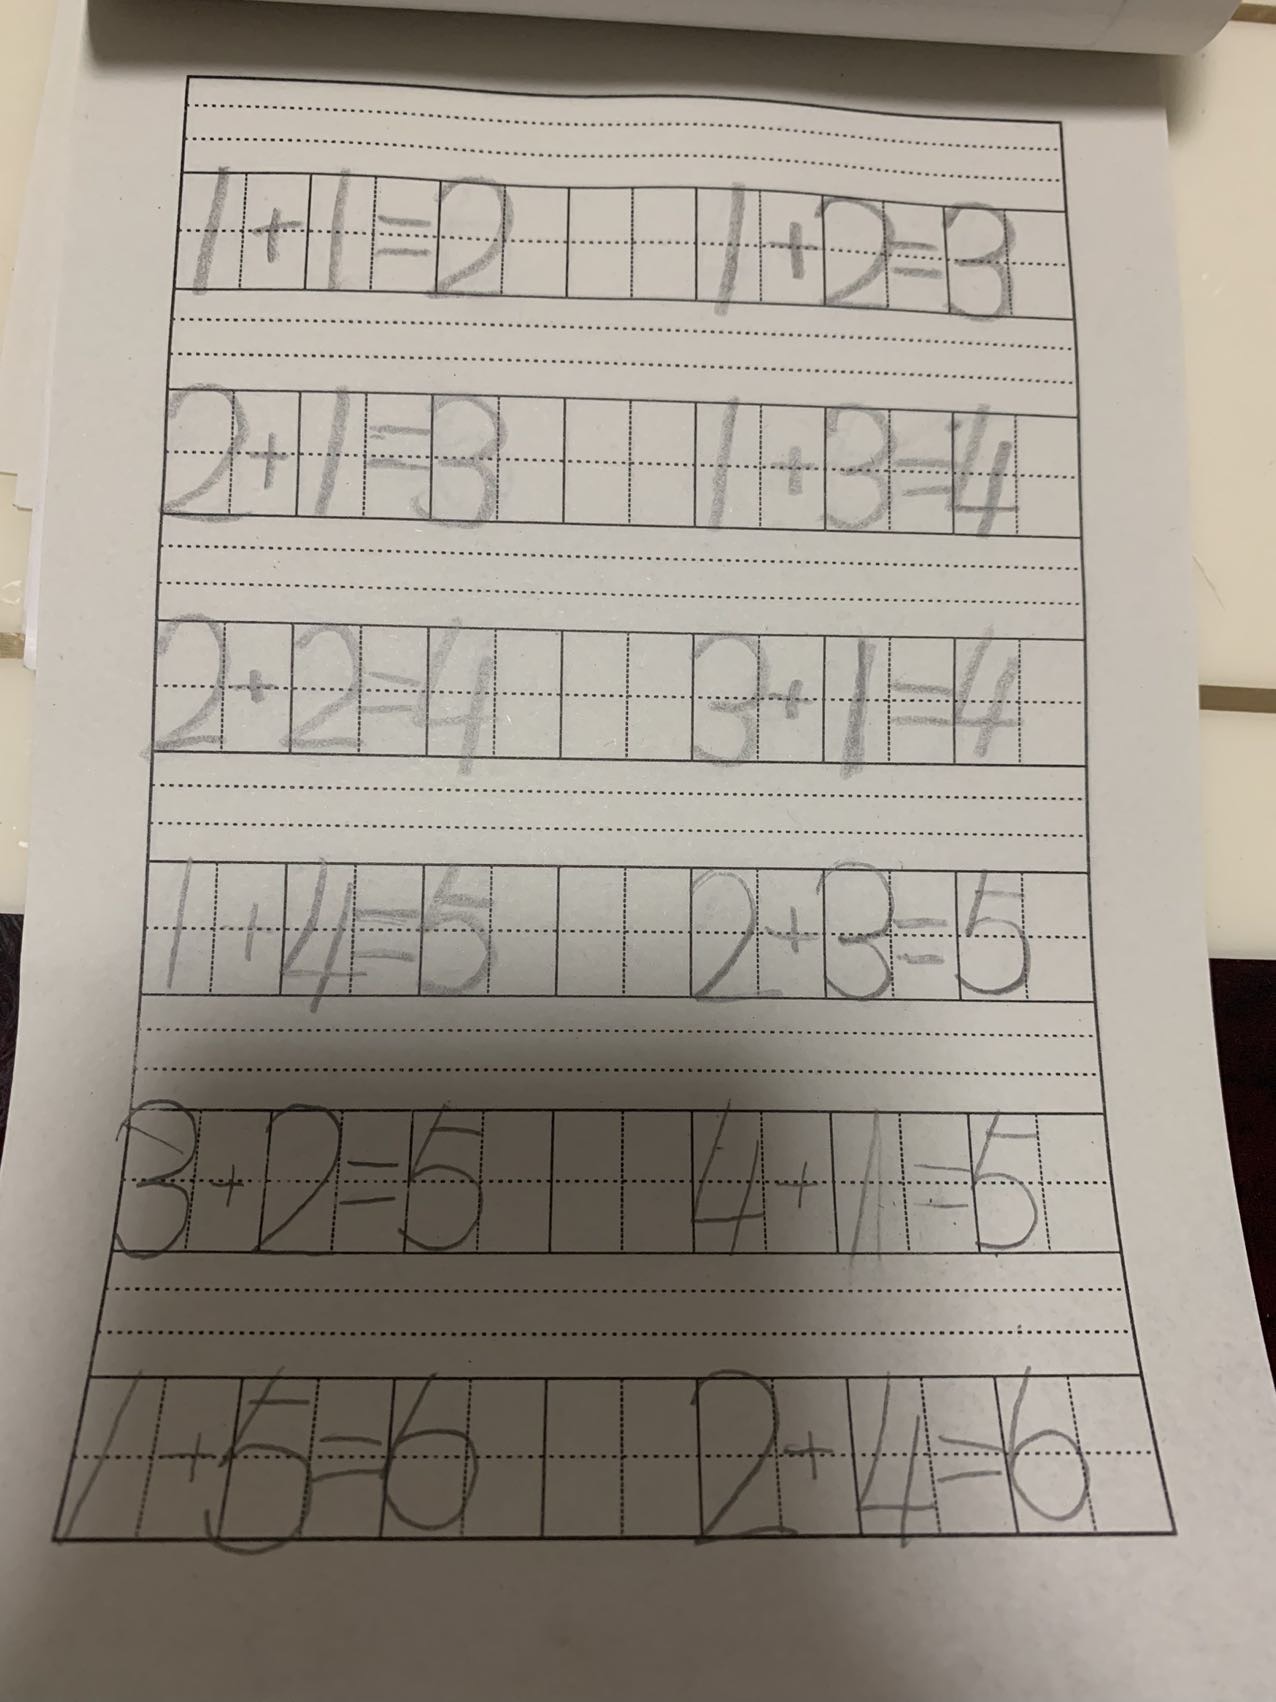 1+1=2 1+2=3
2+1=3 1+3=4
2+2=4 3+1=4
1+4=5 2+3=5
3+2=5 4+1=5
1+5=6 2+4=6